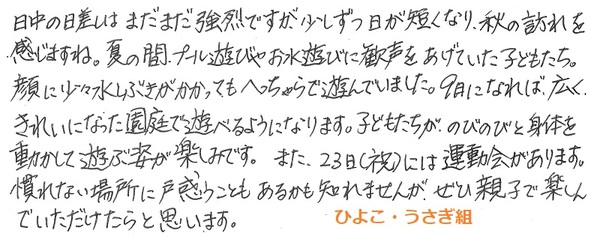 日中の日差しはまだまだ強烈ですが、少しずつ日が短くなり、秋の訪れを
感じますね。夏の間、プール遊びやお水遊びに歓声をあげていた子どもたち。
顔に少々水しぶきがかかってもへっちゃらで遊んでいました。9月になれば、広く、
きれいになった園庭で遊べるようになります。子どもたちが、のびのびと身体を
動かして遊ぶ姿が楽しみです。また、23日(祝)には運動会があります。
慣れない場所に戸惑うこともあるかも知れませんが、ぜひ親子で楽しん
でいただけたらと思います。
ひよこ・うさぎ組